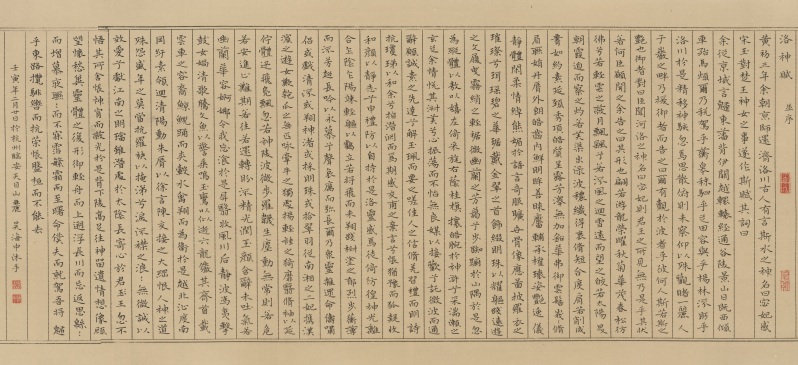 洛神賦 並序
黃初三年余朝京師還濟洛川古人有言斯水之神名曰宓妃感
宋玉對楚王神女之事遂作斯賦其詞曰
余從京域言歸東藩背伊闕越轘轅經通谷陵景山日既西傾
車殆馬煩爾乃稅駕乎蘅皋秣駟乎芝田容與乎楊林流眄乎
洛川於是精移神駭忽焉思散俯則未察仰以殊觀睹一麗人
于巖之畔乃援御者而告之曰爾有覿於彼者乎彼何人斯若斯之
艷也御者對曰臣聞河洛之神名曰宓妃則君王之所見無乃是乎其狀
若何臣願聞之余告之曰其形也翩若游龍榮曜秋菊華茂春松彷
彿兮若輕雲之蔽月飄颻兮若流風之迴雪遠而望之皎若太陽昇
朝霞迫而察之灼若芙蕖出淥波穠纖得衷修短合度肩若削成
腰如約素延頸秀項皓質呈露芳澤無加鉛華弗御雲髻峨峨修
眉聯娟丹脣外朗皓齒內鮮明眸善睞靨輔承權瓌姿艷逸儀
靜體閒柔情綽態媚於語言奇服曠世骨像應圖披羅衣之
璀璨兮珥瑤碧之華琚戴金翠之首飾綴明珠以耀軀踐遠遊
之文履曳霧綃之輕裾微幽蘭之芳藹兮步踟躕於山隅於是忽
焉縱體以遨以嬉左倚采旄右蔭桂旗攘皓腕於神滸兮采湍瀨之
玄芝余情悅其淑美兮心振蕩而不怡無良媒以接歡兮託微波而通
辭願誠素之先達兮解玉珮而要之嗟佳人之信修羌習禮而明詩
抗瓊珶以和余兮指潛淵而為期感交甫之棄言兮悵猶豫而狐疑收
和顏以靜志兮申禮防以自持於是洛靈感焉徙倚彷徨神光離
合乍陰乍陽竦輕軀以鶴立若將飛而未翔踐椒塗之郁烈步蘅薄
而流芳超長吟以永慕兮聲哀厲而彌長爾乃眾靈雜遝命儔嘯
侶或戲清流或翔神渚或採明珠或拾翠羽從南湘之二妃攜漢
濱之遊女歎匏瓜之無匹詠牽牛之獨處揚輕袿之猗靡翳修袖以延
佇體迅飛鳧飄忽若神陵波微步羅襪生塵動無常則若危
若安進止難期若往若還轉眄流精光潤玉顏含辭未吐氣若
幽蘭華容婀娜令我忘飡於是屏翳收風川后靜波馮夷擊
鼓女媧清歌騰文魚以警乘鳴玉鸞以偕逝六龍儼其齊首載
雲車之容裔鯨鯢踊而夾轂水禽翔而為衛於是越北沚度南
岡紆素領迴清陽動朱脣以徐言陳交接之大綱恨人神之道
殊怨盛年之莫當抗羅袂以掩涕兮淚流襟之浪浪無微誠以
效愛兮獻江南之明璫雖潛處於太陰長寄心於君王忽不
悟其所舍悵神宵而蔽光於是背下陵高足往神留遺情想像顧
望懷愁冀靈體之復形御輕舟而上遡浮長川而忘返思緜緜
而增慕夜耿耿而不寐霑繁霜而至曙命僕夫而就駕吾將歸
乎東路攬騑轡而抗策悵盤桓而不能去
壬寅年二月十日於杭州臨安天目山麓 吴海中沐手